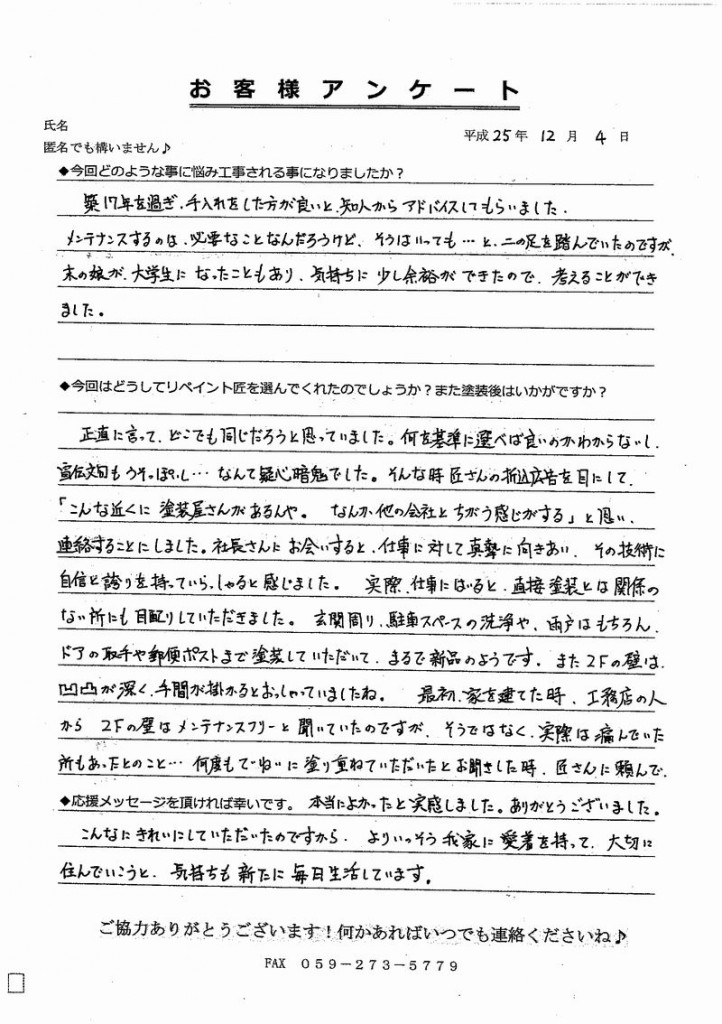 お客様アンケート
氏名
匿名でも構いません♪
平成25年 12月 4日
◆今回どのような事に悩み工事される事になりましたか？
築17年を過ぎ、手入れをした方が良いと、知人からアドバイスしてもらいました。
メンテナンスするのは、必要なことなんだろうけど、そうはいっても…と、二の足を踏んでいたのですが、
末の娘が、大学生になったこともあり、気持ちに少し余裕ができたので、考えることができ
ました。
◆今回はどうしてリペイント匠を選んでくれたのでしょうか？また塗装後はいかがですか？
正直に言って、どこでも同じだろうと思っていました。何を基準に選べば良いのかわからないし、
宣伝文句もうそっぽいし…なんて疑心暗鬼でした。そんな時匠さんの折込広告を目にして、
「こんな近くに塗装屋さんがあるんや。なんか他の会社とちがう感じがする」と思い、
連絡することにしました。社長さんにお会いすると、仕事に対して真勢に向きあい、その技術に
自信と誇りを持っていらっしゃると感じました。実際、仕事にはいると、直接塗装とは関係の
ない所にも目配りしていただきました。玄関周り、駐車スペースの洗浄や、雨戸はもちろん、
ドアの取手や郵便ポストまで塗装していただいて、まるで新品のようです。また2Fの壁は、
凹凸が深く、手間が掛かるとおっしゃっていましたね。最初、家を建てた時、工務店の人
から2Fの壁はメンテナンスフリーと聞いていたのですが、そうではなく、実際は痛んでいた
所もあったとのこと…何度もていねいに塗り重ねていただいたとお聞きした時、匠さんに頼んで、
◆応援メッセージを頂ければ幸いです。本当によかったと実感しました。ありがとうございました。
こんなにきれいにしていただいたのですから、よりいっそう我家に愛着を持って、大切に
住んでいこうと、気持ちも新たに毎日生活しています。
ご協力ありがとうございます！何かあればいつでも連絡くださいね♪
FAX 059－273－5779